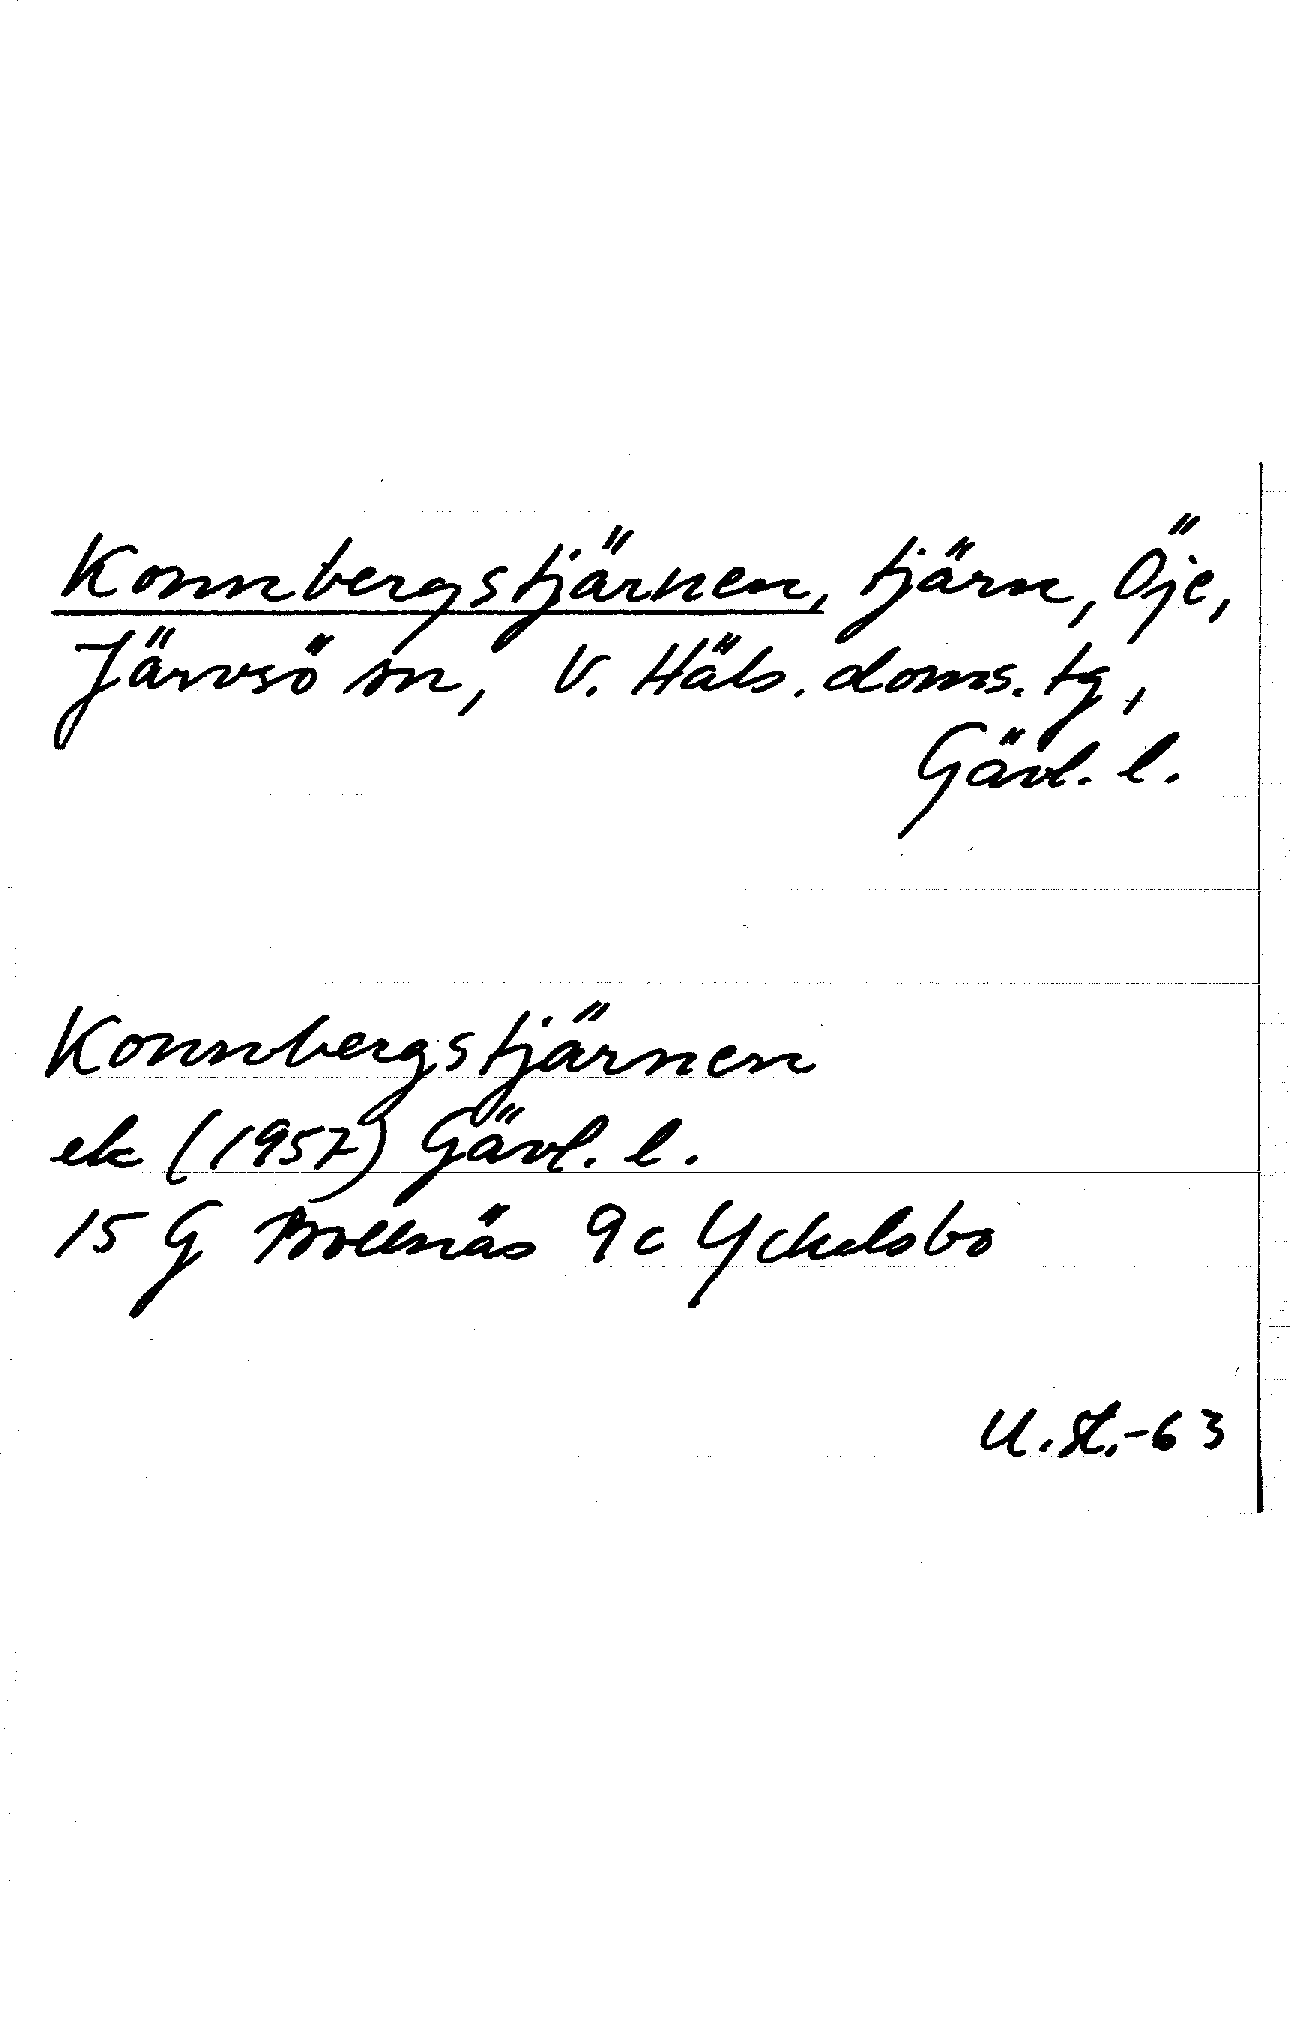 Konnbergstjärnen, tjärn, Öje,
Järvsö sn, V. Häls. doms. tg,
Gävl. l.
Konnbergstjärnen
ek (1957) Gävl. l.
15 G Bollnäs 9c Yckelsbo
U. St.-63